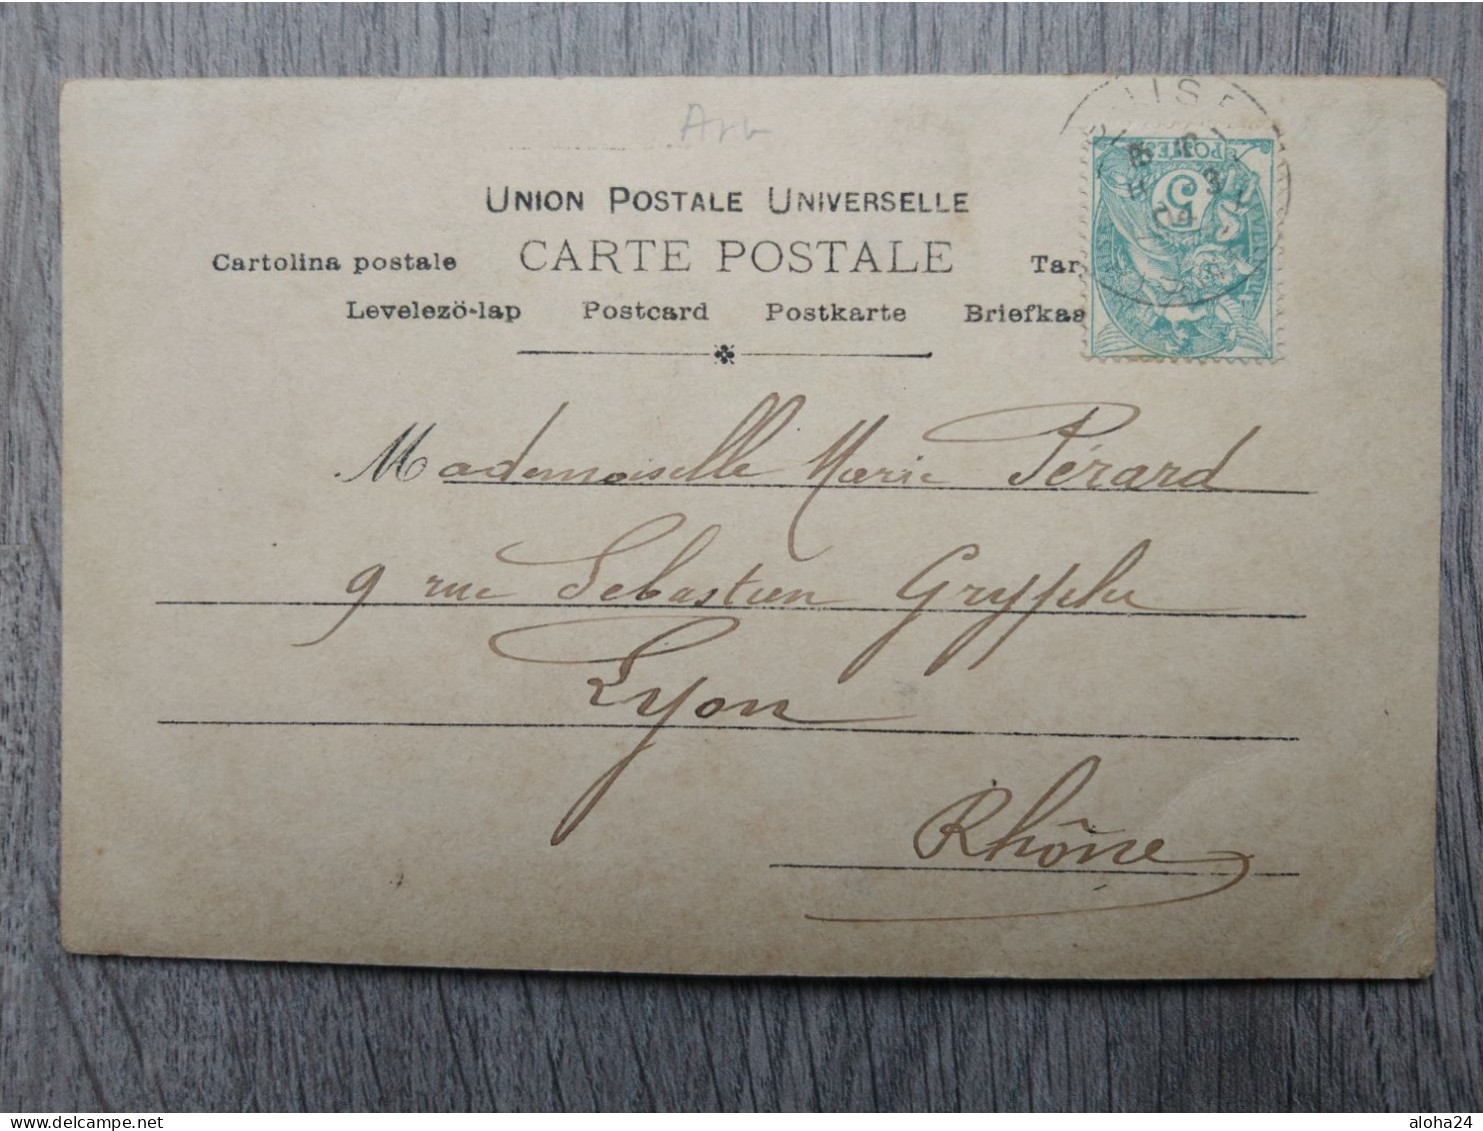 UNION POSTALE UNIVERSELLE
Cartolina postale CARTE POSTALE Tar
Levelezö-lap Postcard Postkarte Briefkaa
POSTES
5
04
Mademoiselle Marie Pérard
9 rue Sebastien Gryphe
Lyon
Rhône
delcampe.net
aloha24